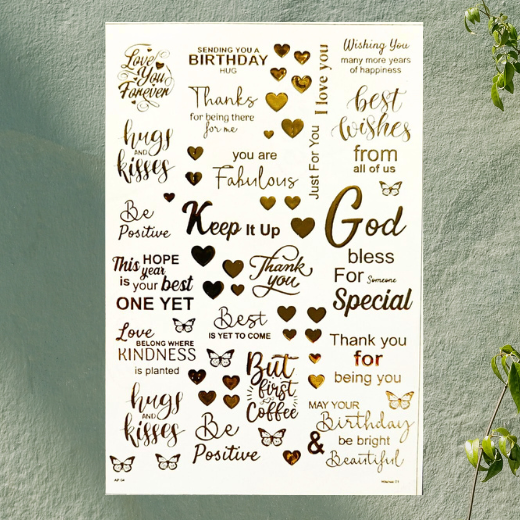 Love
You
Forever
SENDING YOU A
BIRTHDAY
HUG
Thanks
for being there
for me
I love you
Wishing You
many more years
of happiness
best
wishes
from
all of us
hugs
AND
kisses
you are
Fabulous
Just For You
Be
Positive
Keep It Up
God
bless
For Someone
Special
This HOPE
year
is your best
ONE YET
Thank
you
Best
IS YET TO COME
Love
BELONG WHERE
KINDNESS
is planted
But
first
Coffee
Thank you
for
being you
hugs
AND
kisses
Be
Positive
MAY YOUR
Birthday
be bright
&
Beautiful